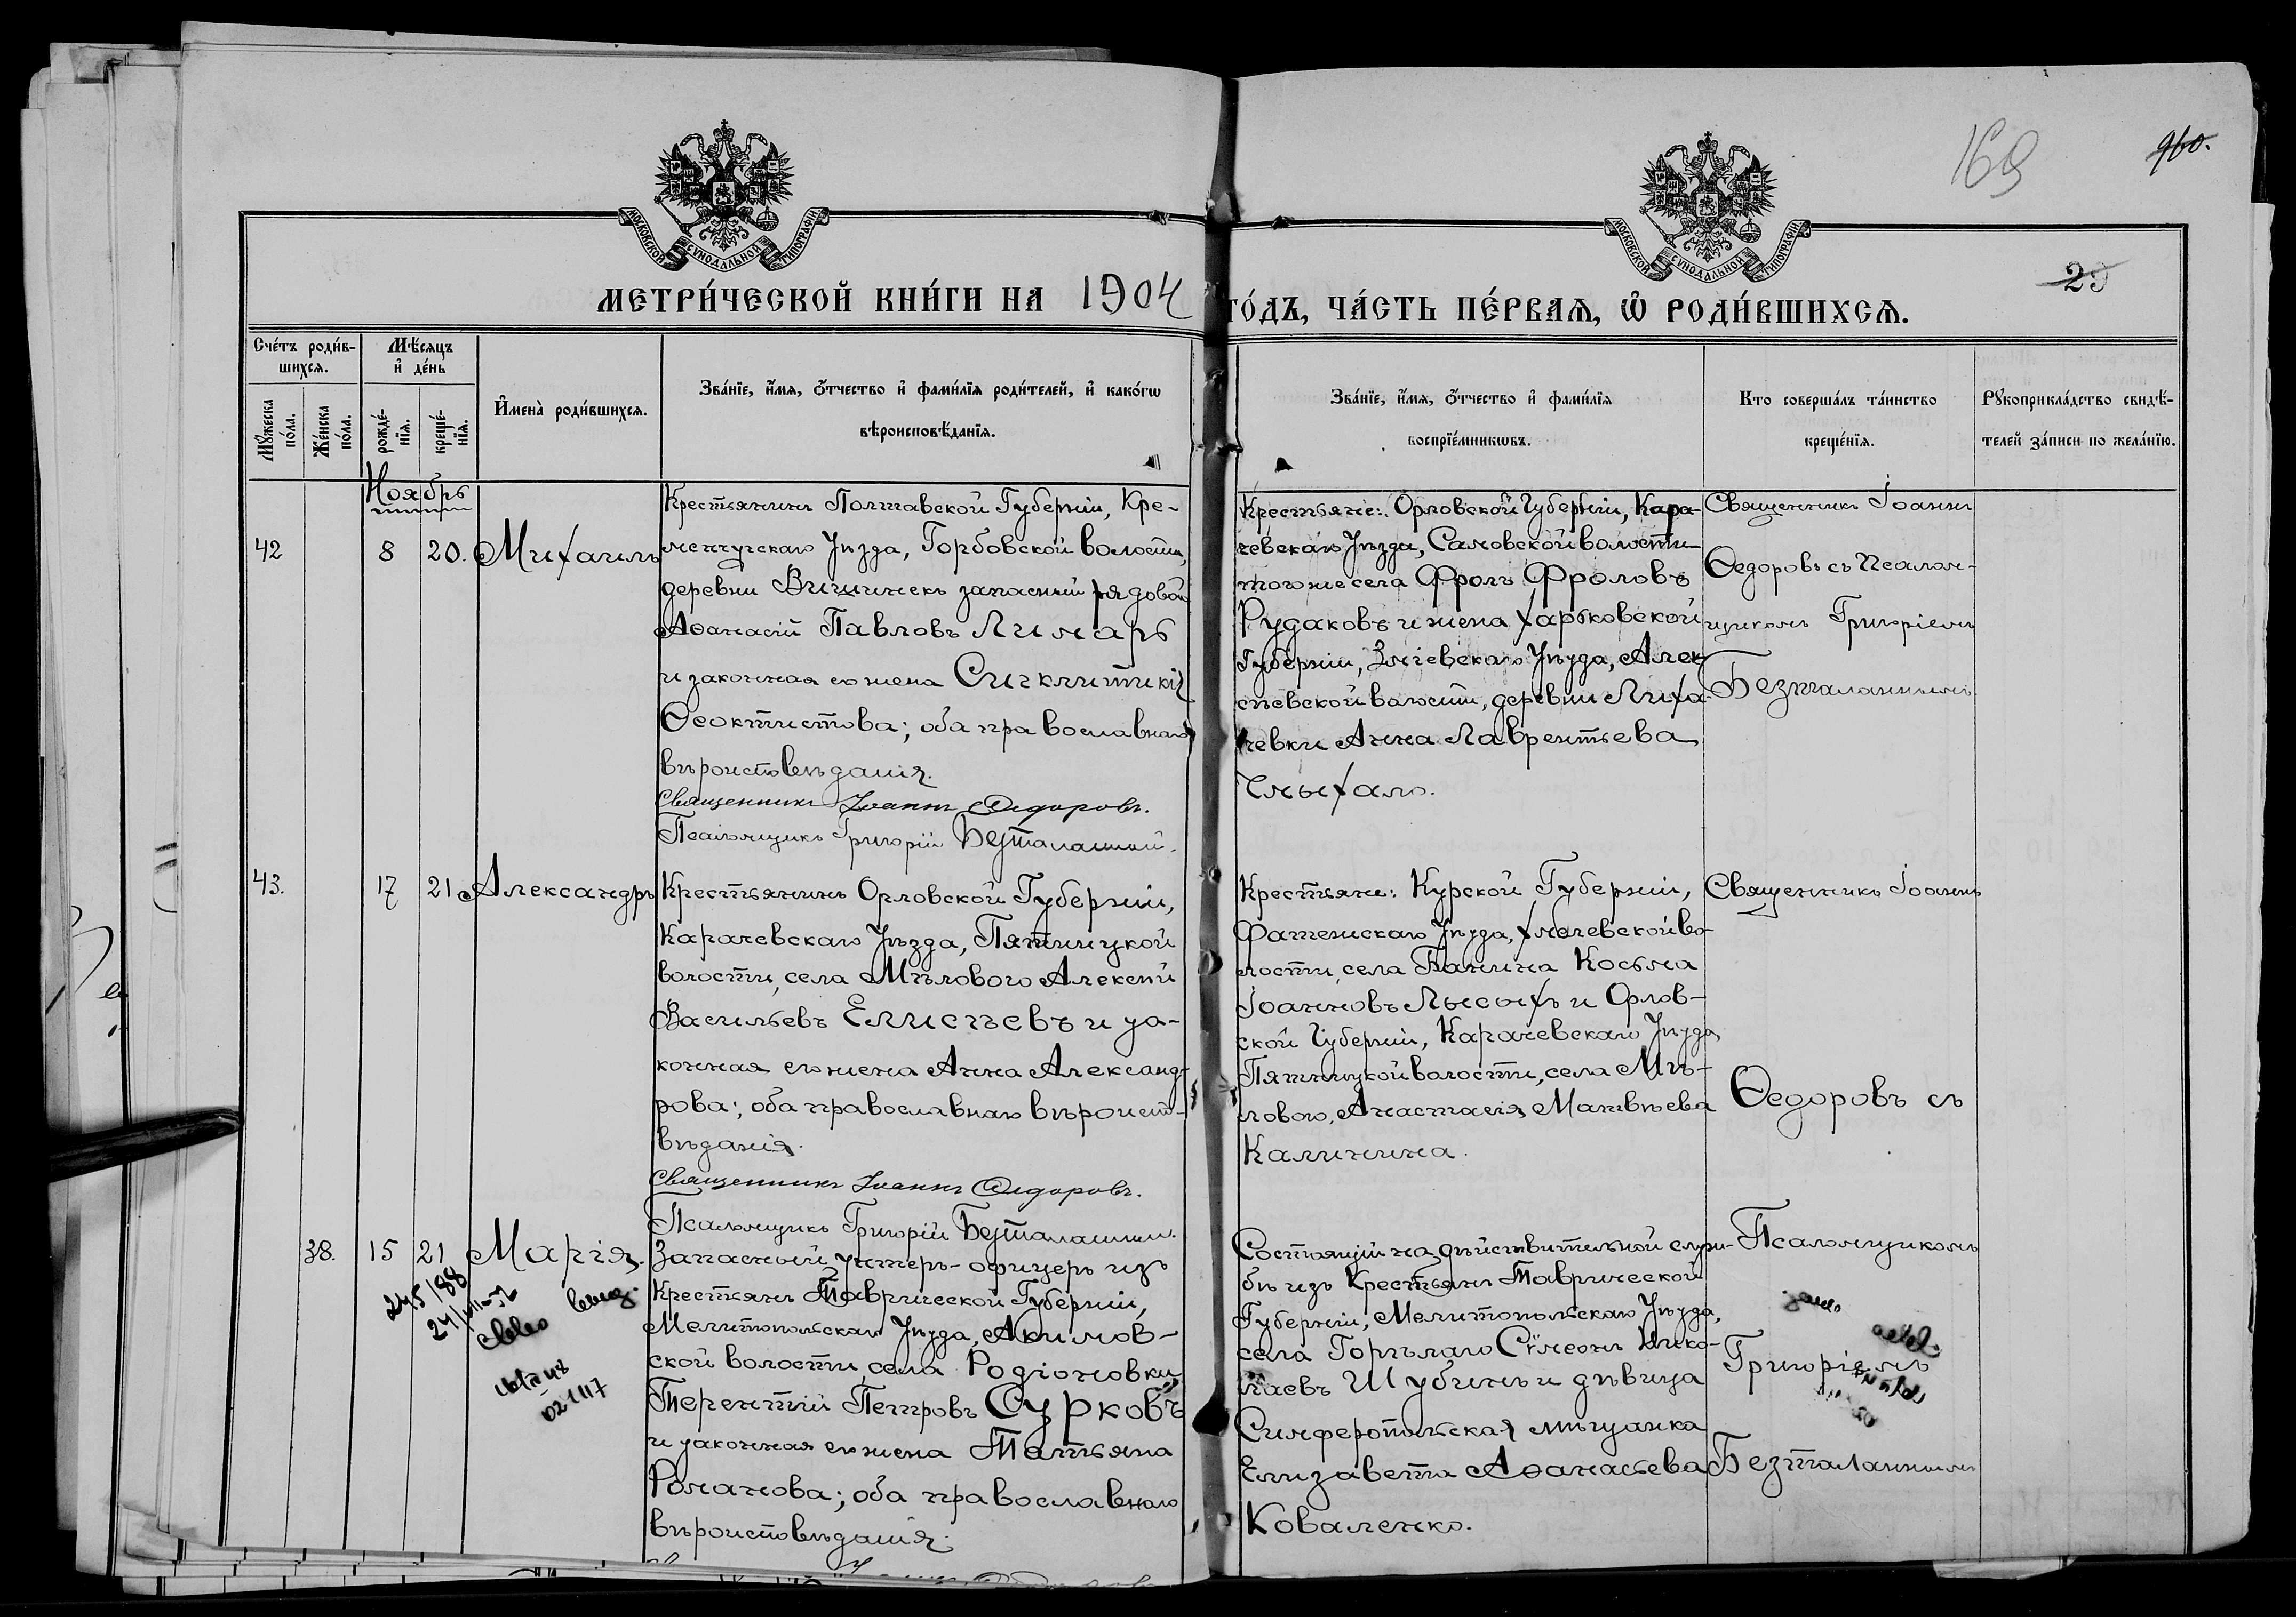 169
960.
МОСКОВСКОЙ СУНОДАЛЬНОЙ ТИПОГРАФІИ
МОСКОВСКОЙ СУНОДАЛЬНОЙ ТИПОГРАФІИ
29
МЕТРИ́ЧЕСКОЙ КНИ́ГИ НА 1904 ГО́ДЪ, ЧА́СТЬ ПЕ́РВАѦ, Ѡ҆ РОДИ́ВШИХСѦ.
Сче́тъ роди́в-
шихсѧ.
Мꙋ́жеска по́ла.
Же́нска по́ла.
Мѣ́сѧцъ
и҆ де́нь
рожде́-
нїѧ.
креще́-
нїѧ.
И҆мена̀ роди́вшихсѧ.
Зва́нїе, и҆́мѧ, ѻ҆́тчество и҆ фами́лїѧ роди́телей, и҆ како́гѡ
вѣроисповѣ́данїѧ.
Зва́нїе, и҆́мѧ, ѻ҆́тчество и҆ фами́лїѧ
воспрїе́мникѡвъ.
Кто соверша́лъ та́инство
креще́нїѧ.
Рꙋкоприкла́дство свидѣ́-
телей за́писи по жела́нїю.
Ноябрь
42
8
20.
Михаилъ
Крестьянинъ Полтавской Губерніи, Кре-
менчугскаго Уѣзда, Горбовской волости,
деревни Вишинекъ запасный рядовой
Аѳанасій Павловъ Лимарь
и законная его жена Сигклитикія
Ѳеоктистова; оба православнаго
вѣроисповѣданія.
Священникъ Іоаннъ Ѳедоровъ.
Псаломщикъ Григорій Безталанный.
Крестьяне: Орловской Губерніи, Кара-
чевскаго Уѣзда, Самовской волости
тогоже села Фролъ Фроловъ
Рудаковъ и жена Харьковской
Губерніи, Зміевскаго Уѣзда, Алек-
сѣевской волости, деревни Лиха-
чевки Анна Лаврентьева
Чмыхало.
Священникъ Іоаннъ
Ѳедоровъ съ Псалом-
щикомъ Григоріемъ
Безталаннымъ
43.
17
21
Александръ
Крестьянинъ Орловской Губерніи,
Карачевскаго Уѣзда, Пятницкой
волости, села Мѣлового Алексѣй
Васильевъ Елисѣевъ и за-
конная его жена Анна Александ-
рова; оба православнаго вѣроиспо-
вѣданія.
Священникъ Іоаннъ Ѳедоровъ.
Псаломщикъ Григорій Безталанный.
Крестьяне: Курской Губерніи,
Фатежскаго Уѣзда, Хмелевской во-
лости, села Банина Косьма
Іоанновъ Лысыхъ и Орлов-
ской Губерніи, Карачевскаго Уѣзда
Пятницкой волости, села Мѣ-
лового, Анастасія Матвѣева
Калинина.
Священникъ Іоаннъ
Ѳедоровъ съ
38.
15
21
Марія.
245/88
Запасный Унтеръ-офицеръ изъ
Крестьянъ Таврической Губерніи,
Мелитопольскаго Уѣзда, Акимов-
ской волости, села Родіоновки
Терентій Петровъ Сурковъ
и законная его жена Татьяна
Романова; оба православнаго
вѣроисповѣданія.
Состоящій на дѣйствительной служ-
бѣ изъ Крестьянъ Таврической
Губерніи, Мелитопольскаго Уѣзда,
села Горѣлаго Сѵмеонъ Нико-
лаевъ Шубинъ и дѣвица
Симферопольская мѣщанка
Елизавета Аѳанасьева
Коваленко.
Псаломщикомъ
Григоріемъ
Безталаннымъ